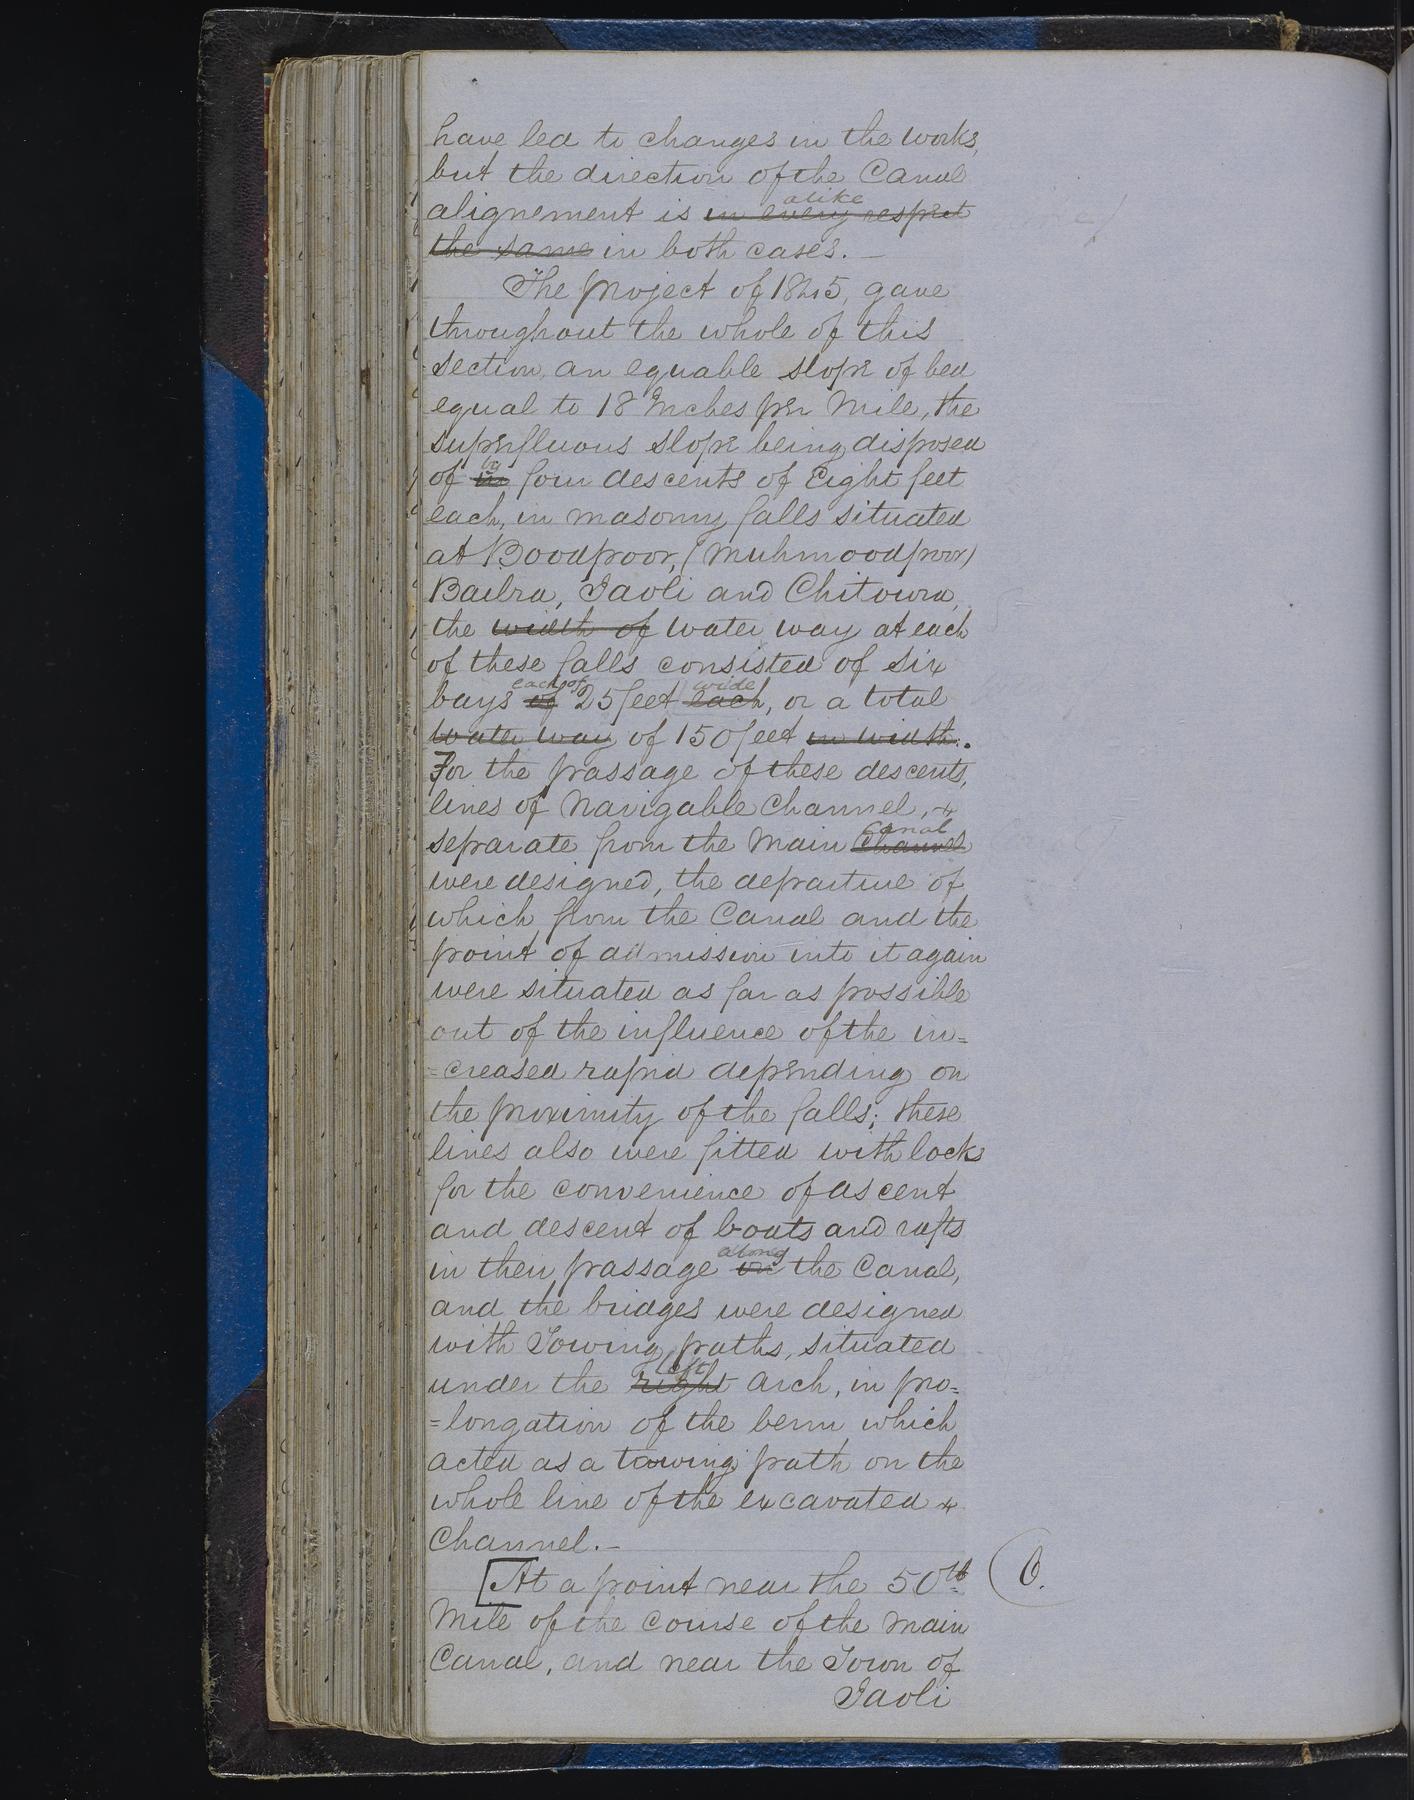 have led to changes in the works,
but the direction of the Canal
alike
alignement is in every respect
the same in both cases. —
The project of 1845, gave
throughout the whole of this
section, an equable slope of bed
equal to 18 Inches per Mile, the
superfluous slope being disposed
by
of in four descents of Eight feet
each, in masonry falls situated
at Boodpoor, (Muhmoodpoor)
Bailra, Jaoli and Chitowra,
the width of water way at each
of these falls consisted of six
each of wide
bays of 25 feet each, or a total
water way of 150 feet in width.
For the passage of these descents,
lines of Navigable Channel,
canal
separate from the Main Channel
were designed, the departure of
which from the Canal and the
point of admission into it again
were situated as far as possible
out of the influence of the in=
=creased rapid depending on
the proximity of the falls; these
lines also were fitted with locks
for the convenience of ascent
and descent of boats and rafts
along
in their passage on the Canal,
and the bridges were designed
with Towing paths, situated
left
under the right arch, in pro=
=longation of the berm which
acted as a towing path on the
whole line of the excavated
Channel. —
[At a point near the 50th 6.
Mile of the course of the main
Canal, and near the Town of
Jaoli